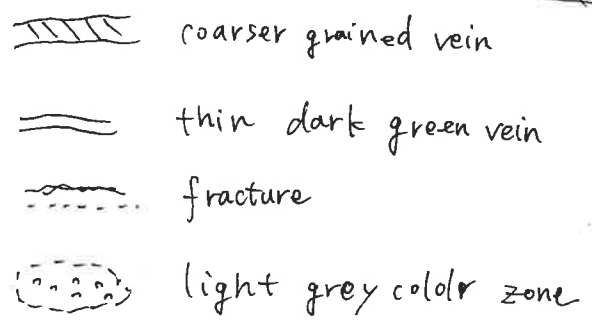 coarser grained vein
thin dark green vein
fracture
light grey color zone